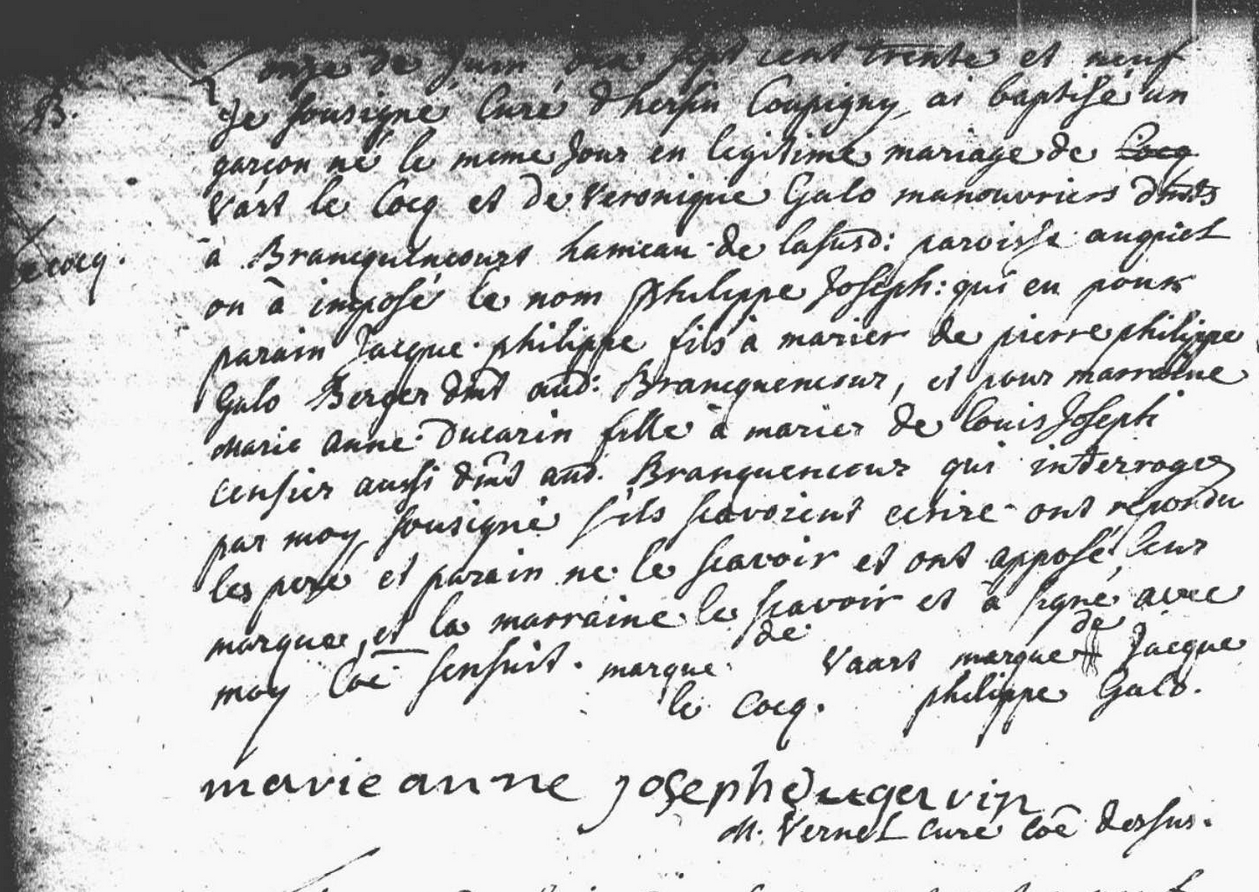 onze de Juin mil sept cent trente et neuf
B.
Je sousigné Curé d'hersin Coupigny ai baptisé un
garçon né le meme Jour en legitime mariage de Cocq
Vast le Cocq et de Veronique Galo manouvriers dmts
le cocq.
à Brancquencourt hameau de lasusd: paroisse auquel
on à imposé le nom Philippe Joseph: qui eu pour
parain Jacque philippe fils à marier de pierre philippe
Galo Berger dmt aud: Brancquencour, et pour marraine
marie anne Ducarin fille à marier de louis Joseph
censier aussi dmt aud. Branquencour qui interroges
par moy sousigné s'ils scavoient ecrire ont repondu
les pere et parain ne le scavoir et ont apposé leur
marque, et la marraine le scavoir et à signé avec
moy Coē sensuit. marque de Vaast marque de Jacque
le Cocq. philippe Galo.
marie anne joseph
M. Vernel curé Coē dessus.